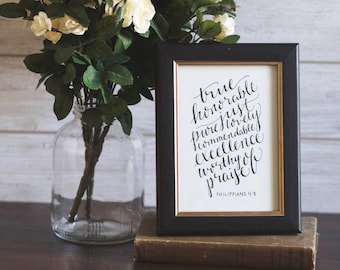 true
honorable
just
pure lovely
commendable
excellence
worthy of
praise
PHILIPPIANS 4:8